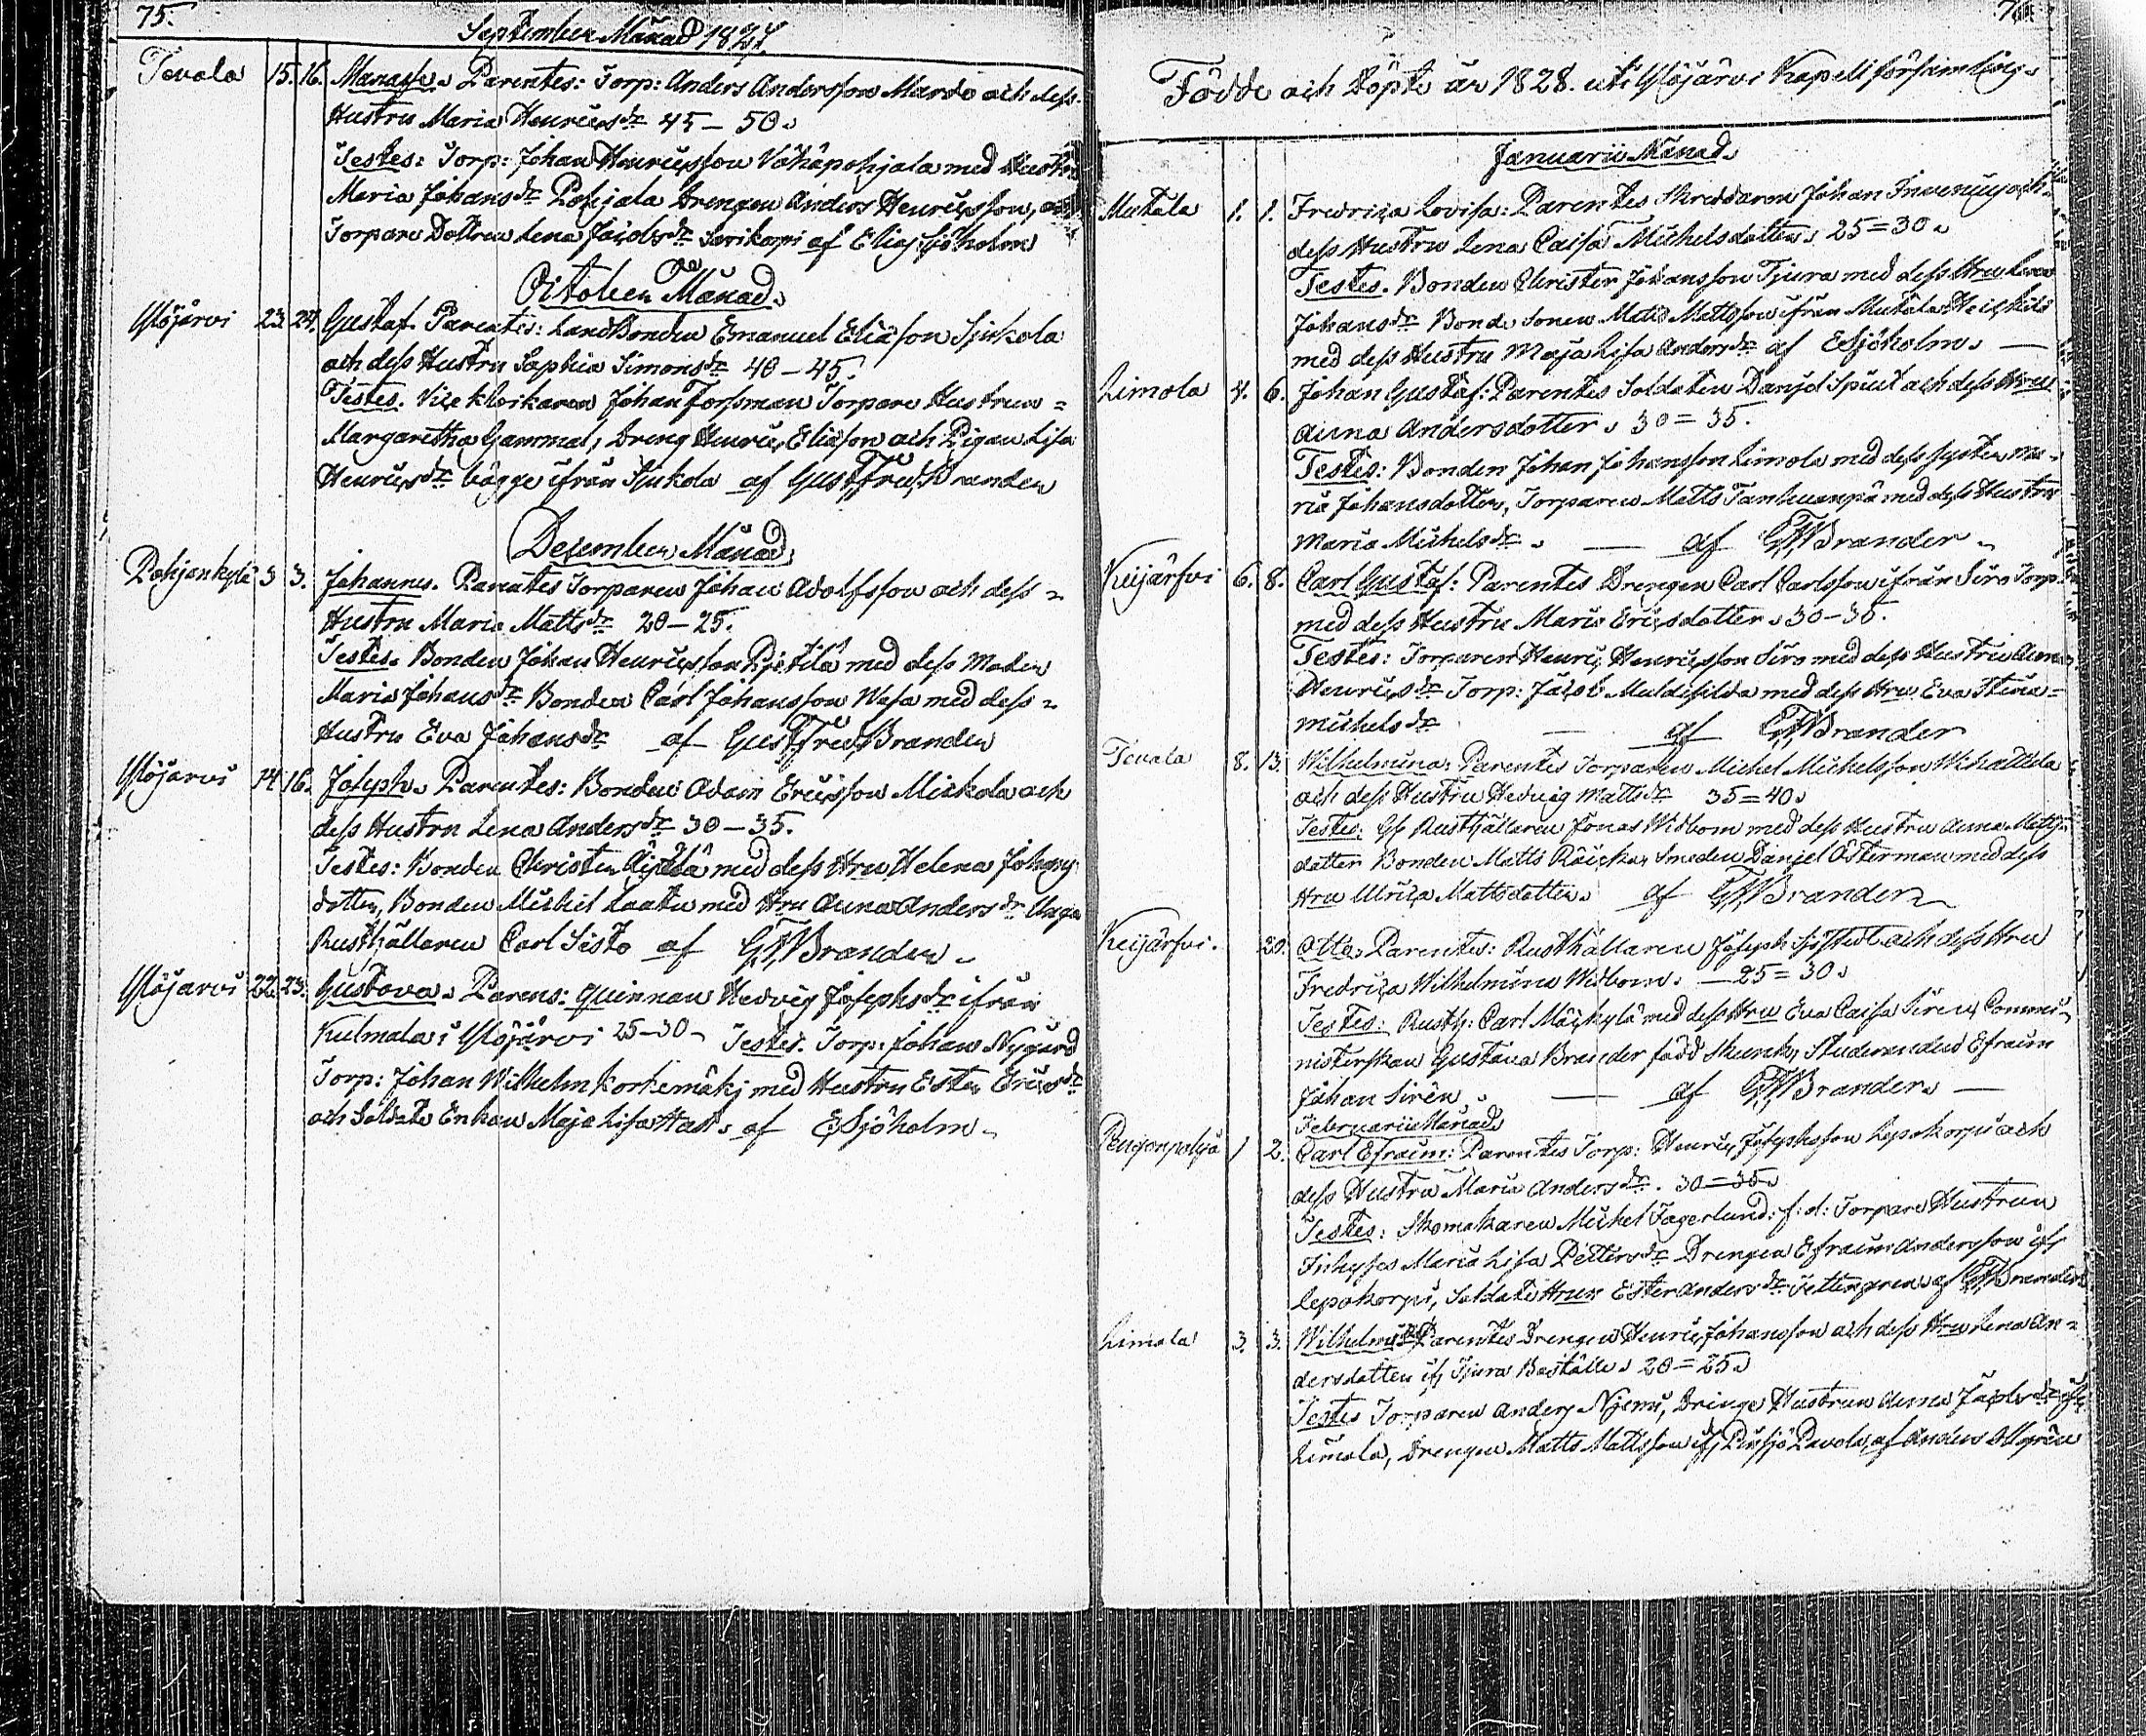 75.
September Månad 1827.
Tevala 15. 16. Manasse. Parentes: Torp: Anders Andersson Mardo och dess
Hustru Maria Henricsdr 45–50.
Testes: Torp: Johan Henricsson Vähäpohjala med Hustru
Maria Johansdr Pohjala Drengen Anders Henricsson, och
Torpare Dottren Lena Jacobsdr Savikopi af Elias Sjöholm
October Månad.
Ylöjärvi 23. 24. Gustaf. Parentes: Landbonden Emanuel Eliasson Sjukola
och dess Hustru Sophia Simonsdr 40–45.
Testes. Vice klockaren Johan Forssman Torpare Hustrun =
Margaretha Gammal, Dreng Henric Eliasson och Pigan Lisa
Henricsdr bägge ifrån Sjukola af Gust. Fred. Brander
December Månad.
Pohjankylä 3 3. Johannes. Parentes Torparen Johan Adolfsson och dess =
Hustru Maria Mattsdr 20–25.
Testes. Bonden Johan Henricsson Pjetilä med dess Moder
Maria Johansdr Bonden Carl Johansson Wasa med dess =
Hustru Eva Johansdr af Gust Fred Brander
Ylöjärvi 14 16. Joseph. Parentes: Bonden Adam Ericsson Mickola och
dess Hustru Lena Andersdr 30–35.
Testes: Bonden Christer med dess Hru Helena Johans
dotter, Bonden Michel Laatu med Hru Anna Andersdr Unga
Rusthållaren Carl Sisto af GFBrander.
Ylöjärvi 22. 23. Gustava. Parens: Quinnan Hedvig Josephsdr ifrån
Kulmala i Ylöjärvi 25–30 Testes. Torp: Johan Nygård
Torp: Johan Wilhelm Korkemäki med Hustru Ester Ericsdr
och Soldate Enkan Maja Lisa Hast. af ESjöholm.
Födde och Döpte år 1828. uti Ylöjärvi Kapell församling.
Januarii Månad.
Mutala 1. 1. Fredrica Lovisa: Parentes Skreddaren Johan och
dess Hustru Lena Caisa Michelsdotter. 25=30.
Testes. Bonden Christer Johansson Tjura med dess Hru Lena
Johansdr Bonde Sonen Matts Mattsson ifrån Mutala Heickilä
med dess Hustru Maja Lisa Andersdr af ESjöholm. —
Limola 4. 6. Johan Gustaf: Parentes Soldaten Danjel och dess Hru
Anna Andersdotter. 30=35.
Testes: Bonden Johan Johansson Limola med dess syster Ma-
ria Johansdotter, Torparen Matts med dess Hustru
Maria Michelsdr. — af GFBrander.
Keijärfvi 6. 8. Carl Gustaf: Parentes Drengen Carl Carlsson ifrån Siro Torp
med dess Hustru Maria Ericsdotter. 30–35.
Testes: Torparen Henric Henricsson Siro med dess Hustru Anna
Henricsdr Torp: Jacob med dess Hru Eva Stina =
Michelsdr — af GFBrander
Tevala 8. 13. Wilhelmina: Parentes Torparen Michel Michelsson Wihattula
och dess Hustru Hedvig Mattsdr 35=40.
Testes: Rusthållaren Jonas Widbom med dess Hustru Anna Matts
dotter Bonden Matts Räicka, Smeden Danjel Österman med dess
Hru Ulrica Mattsdotter. af GFBrander
Keijärfvi. 20. Otto. Parentes: Rusthållaren Joseph Sjöstedt och dess Hru
Fredrica Wilhelmina Widbom. — 25=30.
Testes: Rusth: Carl Mäckylä med dess Hru Eva Caisa Siren, Commi-
nisterskan Gustava Brander född Munck, Studeranden Efraim
Johan Sirén. — af GFBrander. —
Februarii Månad.
Pengonpohja 1 2. Carl Efraim: Parentes Torp: Henric Josephsson Lepokorpi och
dess Hustru Maria Andersdr. 30=35.
Testes: Skomakaren Michel Fagerlund: f:d: Torpare Hustrun
Maria Lisa Pettersdr Drengen Efraim Andersson ifr
Lepokorpi, Soldate Hrun Ester Andersdr af GFBrander
Limola 3. 3. Wilhelm Parentes Drengen Henric Johansson och dess Hru Lena An=
dersdotter ifr Tjura Boställe. 20=25.
Testes Torparen Anders Njemi, Drenge Hustrun Anna Jacobsdr ifr
Limola, Drengen Matts Mattsson ifr Pavola, af Anders Allgrén